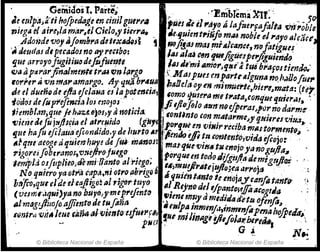 Gemidos I. Parte,
de culpa, ti hospedage en cinil guerra
niega el aire, la mar, el Cielo, y tierra,
Adonde voy à sombra de texados
deudas de pecados no ay recibos
que arroyo fugitiuo de su fuente
và à parar finalmente tras vn largo
correr à vn mar amargo. Ay que à
de el dueño de esta esclaua es la potencia,
todos de su presencia los enojos
tiemblan, que se haze ojos, y à noticia
viene de su justicia el atreuido
que ha su esclaua escondido, y de hurto
al que acoge à quien huye de sus manos
rigores soberanos, vuestro fuego
templad os suplico, de mi llanto al riego.
No quiero ya otra capa, ni otro abrigo
busco, que el de el castigo: al rigor tuyo
(vesme aqui) ya no huyo, y me presento
al magestuoso assiento de tu saña
contra vna leue caña al viento
Emblema XII. 50
pues de el rayo à la fuerça falta vn roble
de quien triūfo mas noble el rayo alcāce,
no sigas mas mi alcance, no fatigues
las alas con que sigues persiguiendo
las de mi amor, que à tus braços tiendo.
Mas pues en parte alguna no hallo fuer
hazla oy en mi muerte, hiere, mata:
como quiera me trata, conque quieras,
si esso solo aun no esperas, por no darme
contento con matarme, y quieres viua,
porque en viuir reciba mas tormento,
siendo esse tu contento, vida escojo:
mas que viua tu enojo ya no gusta,
porque en todo disgusta de mi gusto
ea, muestrate justo; sea arrojo
à quien tanto te enoja, y tanto
al Reyno del espantoso acogida
viene muy à medida de tu ofensa,
à culpa inmensa, inmensa pena hospeda,
que mi linage esse solar hereda,
G 2 No-
Biblioteca Nacional de España
Biblioteca Nacional de España